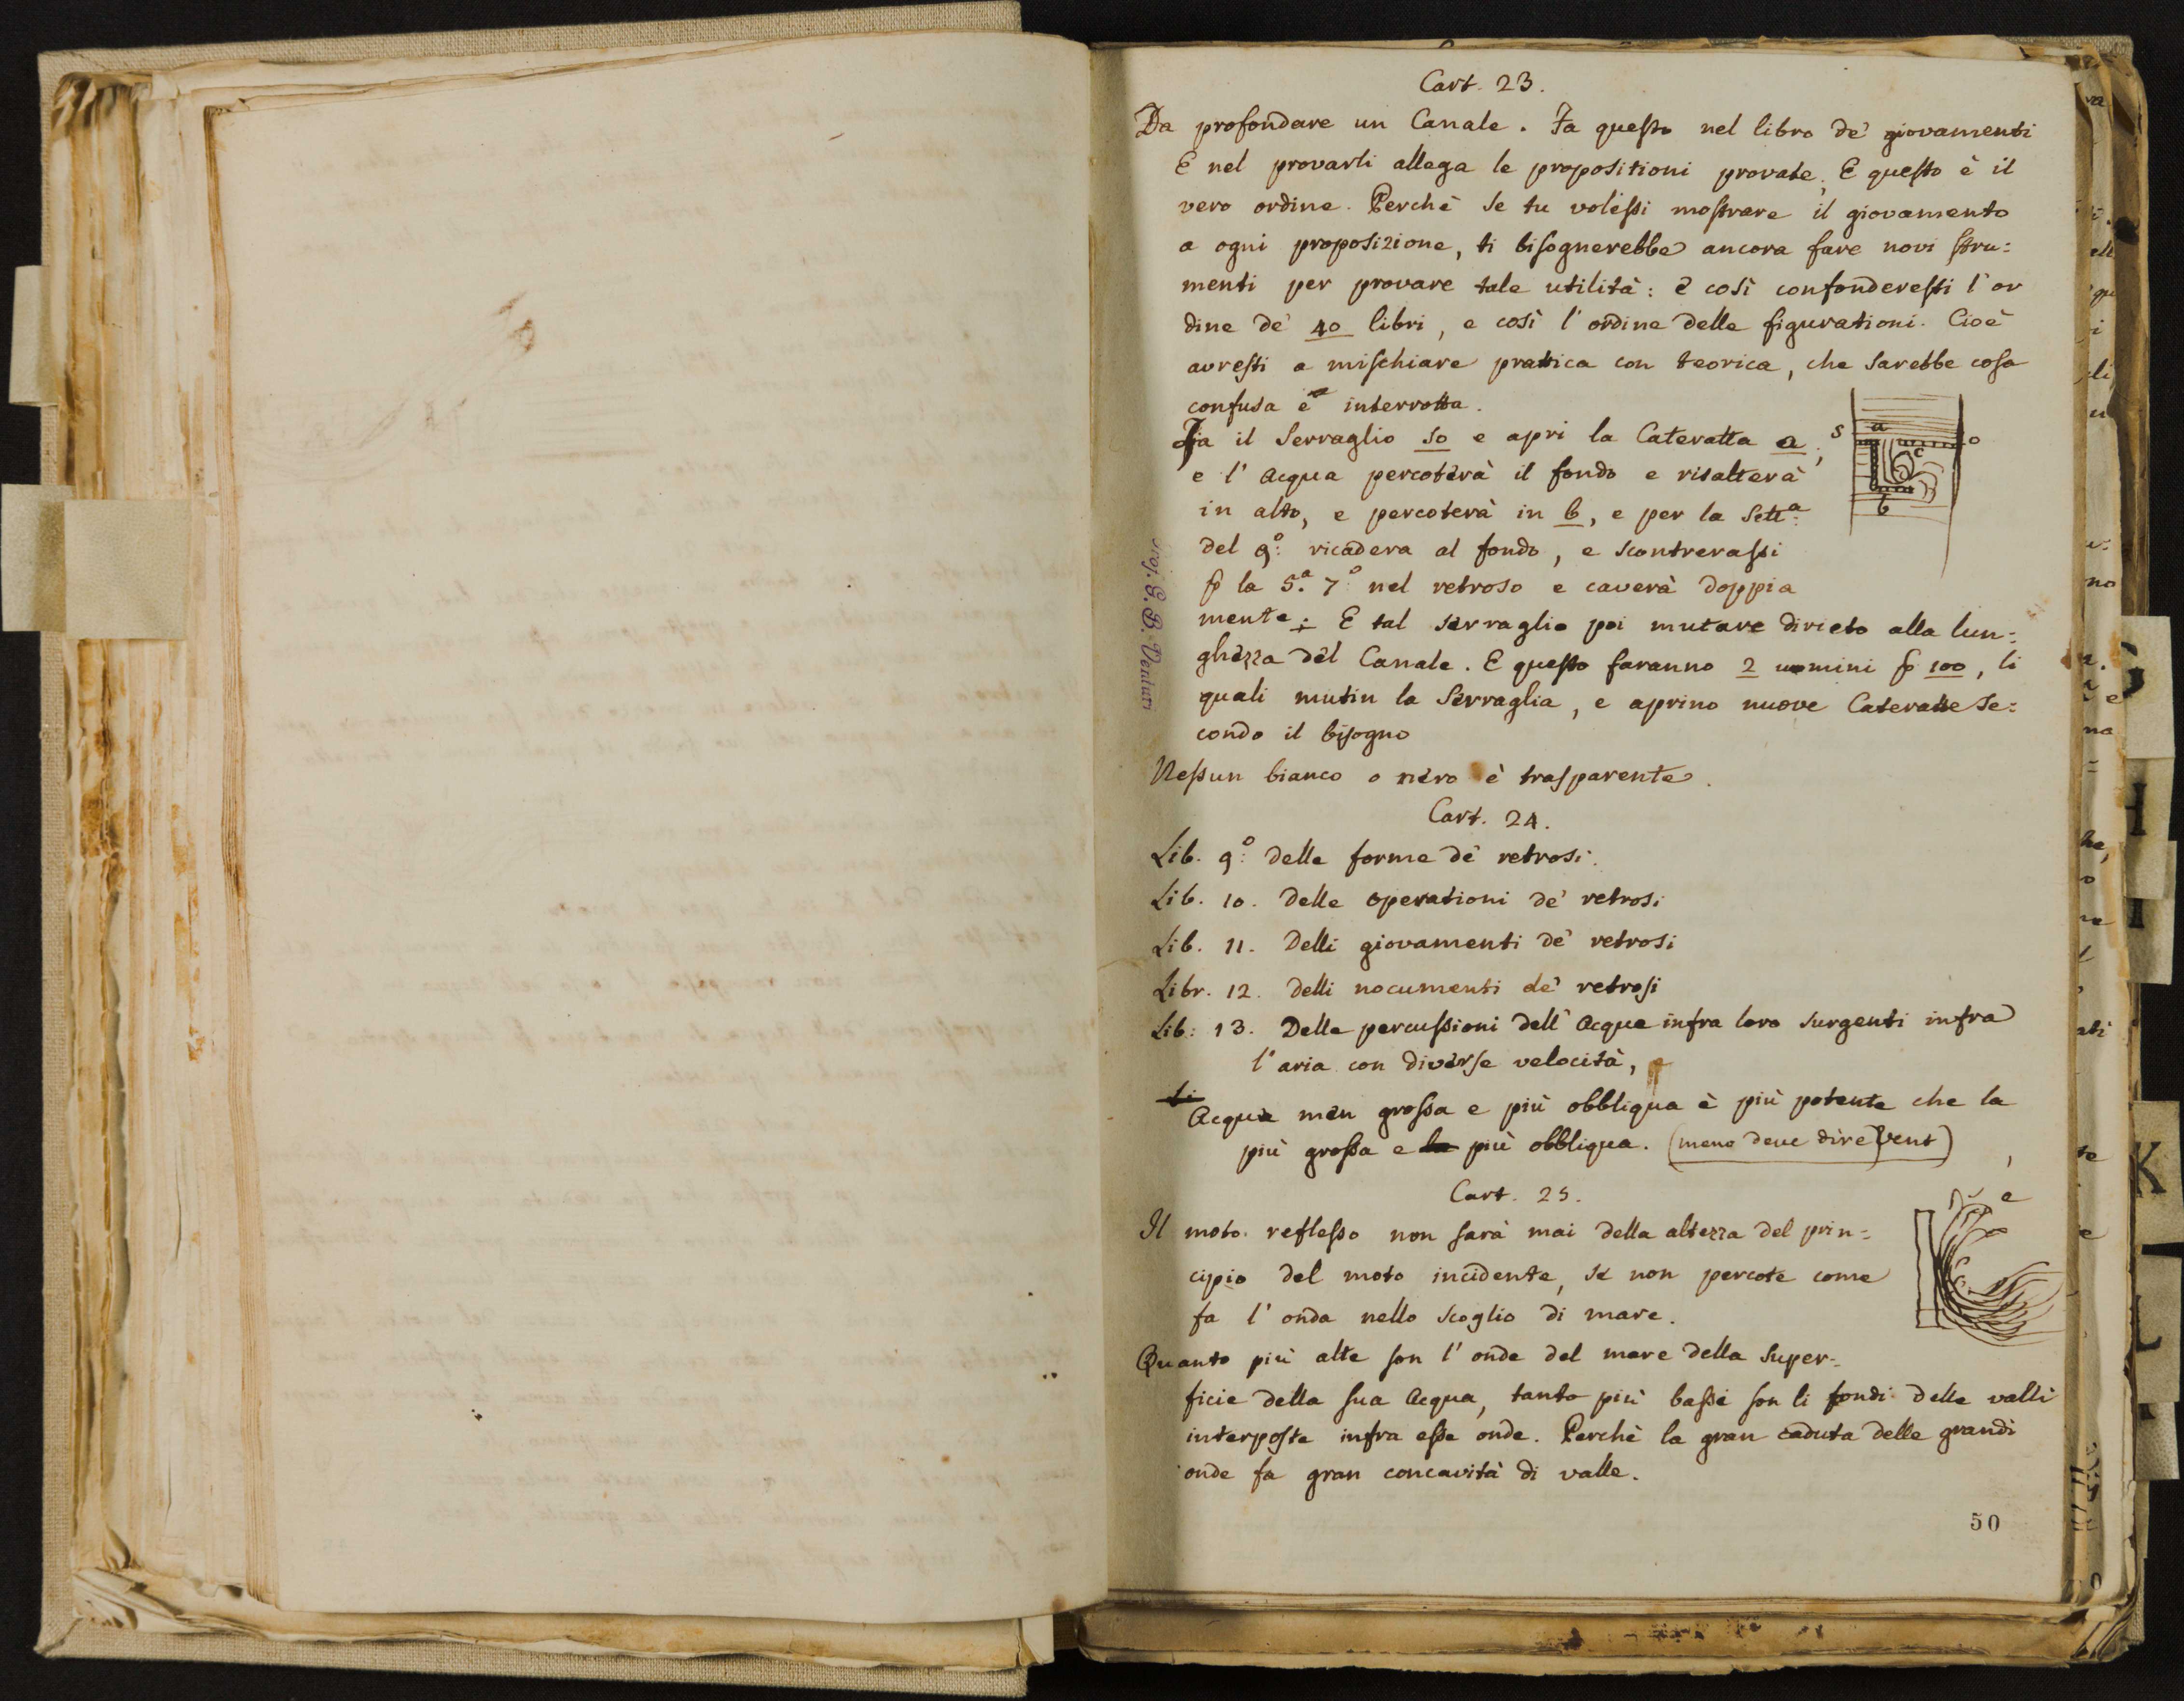 Cart. 23.
Da profondare un Canale. Fa questo nel libro de' giovamenti
E nel provarli allega le propositioni provate. E questo è il
vero ordine. Perchè se tu volessi mostrare il giovamento
a ogni proposizione, ti bisognerebbe ancora fare novi stru:
menti per provare tale utilità: e così confonderesti l'or
dine de' 40 libri, e così l'ordine delle figurationi. Cioè
avresti a mischiare prattica con teorica, che sarebbe cosa
confusa e interrotta.
Fia il Serraglio so e apri la Cateratta a;
e l'Acqua percoterà il fondo e risalterà
in alto, e percoterà in b, e per la Sett.a
del 9.o ricadera al fondo, e scontrerassi
p la 5.a 7.o nel retroso e caverà doppia
mente; E tal serraglio poi mutare dirieto alla lun:
ghezza del Canale. E questo faranno 2 uomini p 100, li
quali mutin la Serraglia, e aprino nuove Cateratte Se:
condo il bisogno
Nessun bianco o nero è trasparente.
Cart. 24.
Lib. 9.o delle forme de' retrosi.
Lib. 10. delle operationi de' retrosi
Lib. 11. Delli giovamenti de' retrosi
Libr. 12. delli nocumenti de' retrosi
Lib: 13. Delle percussioni dell' Acque infra loro surgenti infra
l'aria con diverse velocità,
Acqua men grossa e più obbliqua è più potente che la
più grossa e la più obbliqua. (meno deve dire Vent)
Cart. 25.
Il moto reflesso non sarà mai della altezza del prin:
cipio del moto incidente, se non percote come
fa l'onda nello scoglio di mare.
Quanto più alte son l'onde del mare della Super:
ficie della sua Acqua, tanto più bassi son li fondi delle valli
interposte infra esse onde. Perchè la gran caduta delle grandi
onde fa gran concavità di valle.
50
s
a
o
c
b
e
G. B. Venturi
K
L